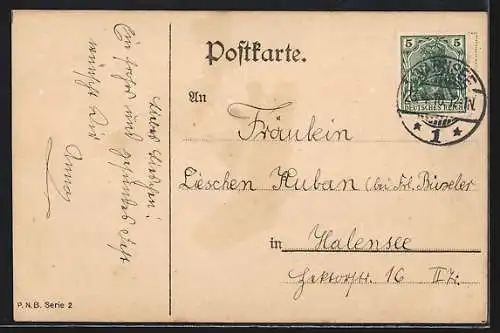 Postkarte.
5 5
DEUTSCHES REICH
1
Liebes Lieschen!
Ein frohes und gesundes Fest
wünscht Dir
Anna
An
Fräulein
Lieschen Kuban (bei Frl. Büseler
in Halensee
Hektorstr. 16 II
P. N. B. Serie 2